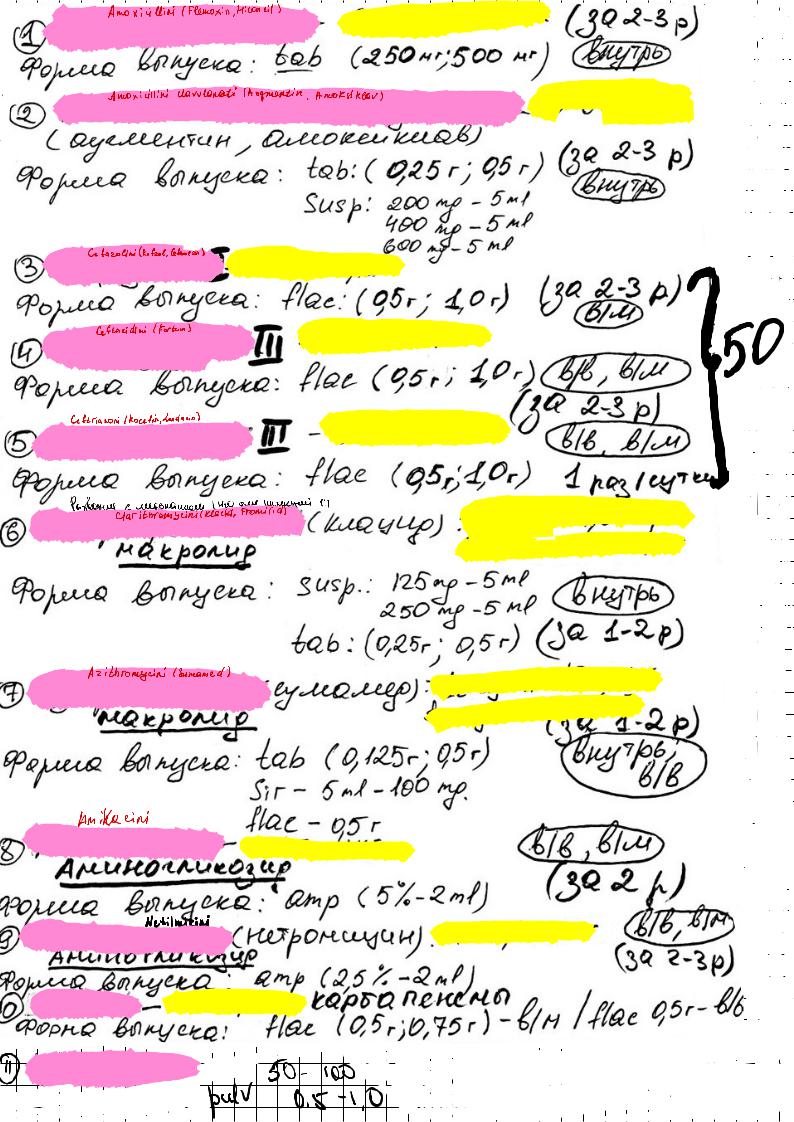 Amoxicillini (Flemoxin, Hiconcil)
① (за 2-3 р)
Форма выпуска: tab (250 мг; 500 мг) внутрь
Amoxicillini clavulanati (Augmentin, Amoksiklav)
②
(аугментин, амоксиклав)
Форма выпуска: tab: (0,25 г; 0,5 г) (за 2-3 р)
внутрь
Susp: 200 mg - 5 ml
400 mg - 5 ml
600 mg - 5 ml
③ I
Форма выпуска: flac: (0,5 г; 1,0 г) (за 2-3 р)
в/м
④ (Fortum) III
Форма выпуска: flac (0,5 г; 1,0 г) в/в, в/м
(за 2-3 р)
⑤ III - в/в, в/м
Форма выпуска: flac (0,5 г; 1,0 г) 1 раз/сутки
50
Clarithromycini (Klacid, Fromilid)
⑥ (клацид):
макролид
Форма выпуска: susp.: 125 mg - 5 ml внутрь
250 mg - 5 ml
tab: (0,25 г; 0,5 г) (за 1-2 р)
Azithromycini (Sumamed)
⑦ (сумамед):
макролид (за 1-2 р)
Форма выпуска: tab (0,125 г; 0,5 г) внутрь,
в/в
Sir - 5 ml - 100 mg.
flac - 0,5 г
Amikacini
8 - в/в, в/м
Аминогликозид (за 2 р)
Форма выпуска: amp (5% - 2 ml)
Netilmicini
9 (нетромицин). в/в, в/м
Аминогликозид (за 2-3 р)
Форма выпуска: amp (2,5% - 2 ml)
10 - картапенемы
Форма выпуска: flac (0,5 г; 0,75 г) - в/м / flac 0,5 г - в/в
11
50 - 100
pulv 0,5 - 1,0